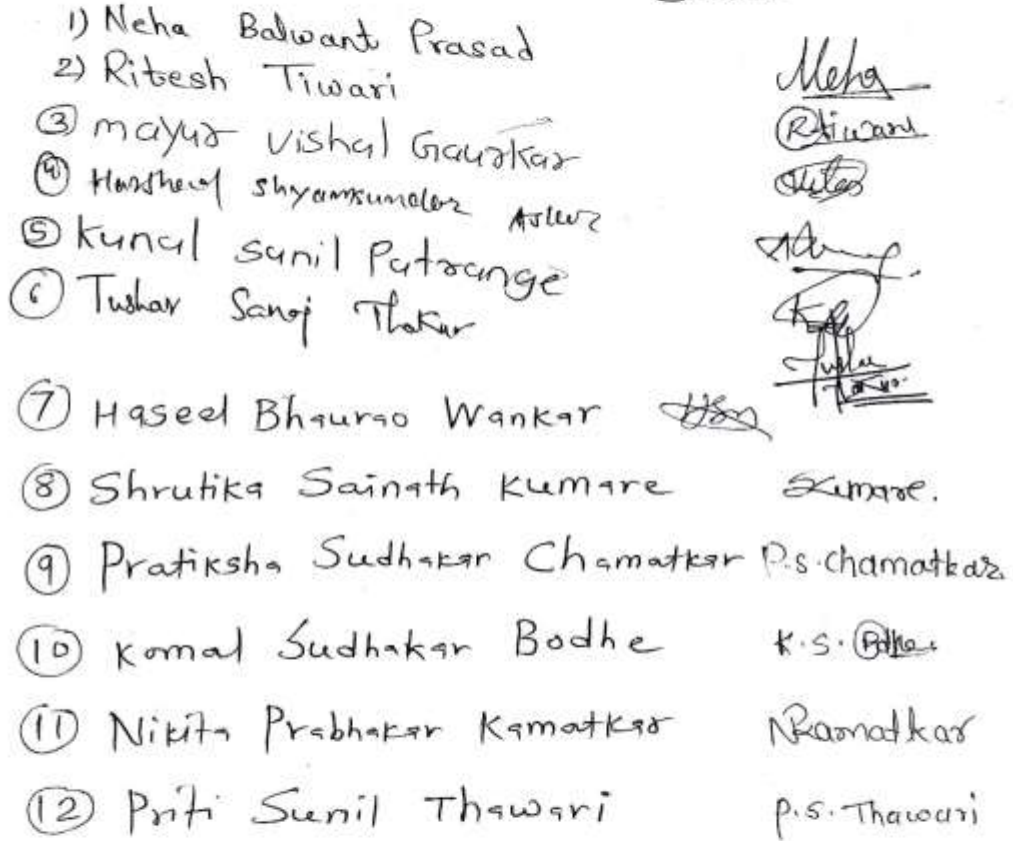 1) Neha Balwant Prasad Neha
2) Ritesh Tiwari RTiwari
3 Mayur Vishal Gaurkar
4 Harshal Shyamsunder
5 Kunal Sunil Patrange
6 Tushar Sanoj Thakur Tushar
7 Haseel Bhaurao Wankar
8 Shrutika Sainath Kumare Skumare.
9 Pratiksha Sudhakar Chamatkar P.S.Chamatkar
10 Komal Sudhakar Bodhe K.S.Bodhe.
11 Nikita Prabhakar Kamatkar NKamatkar
12 Priti Sunil Thawari P.S.Thawari